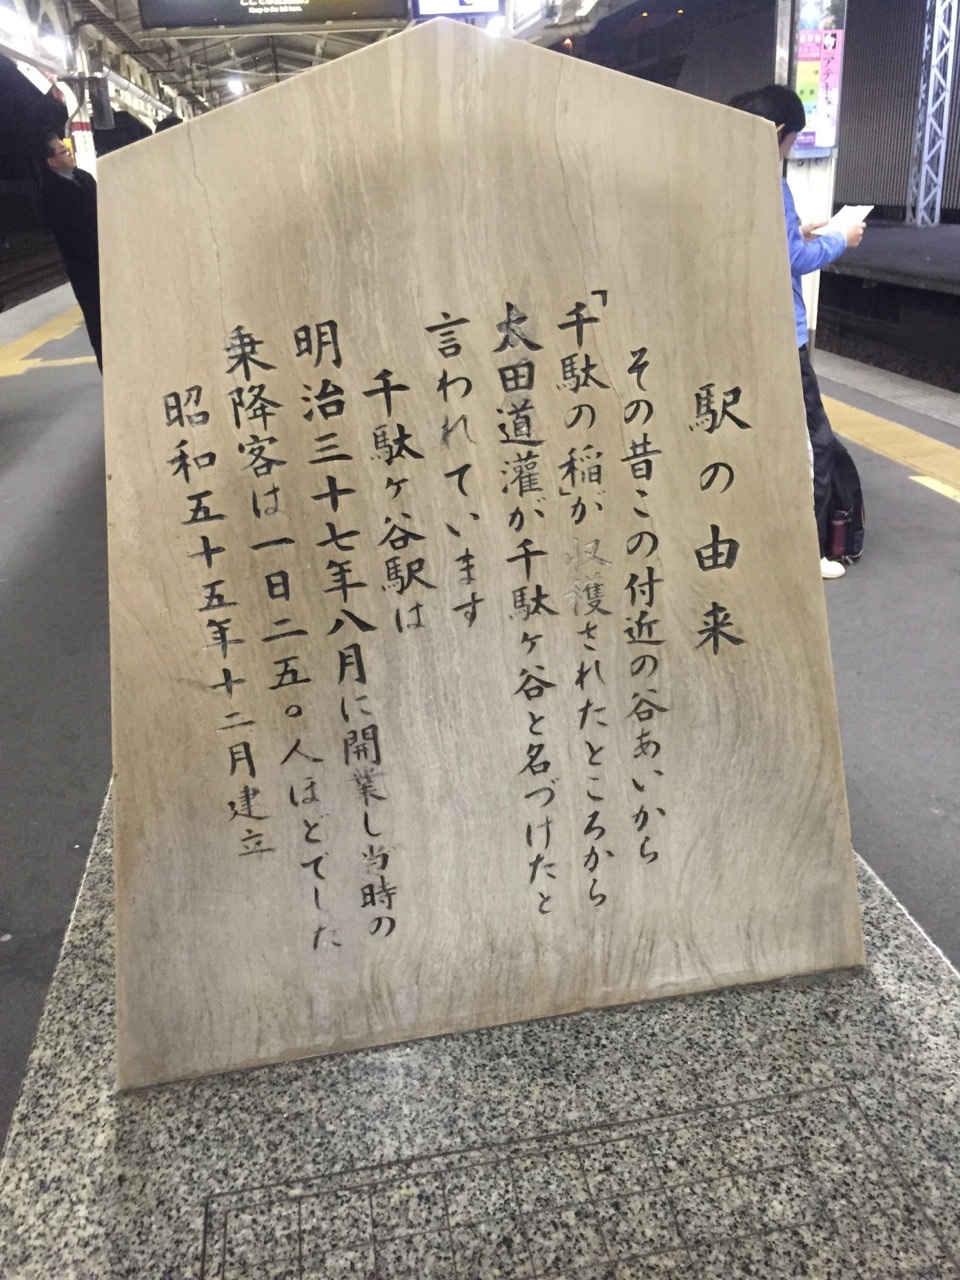 Keep to the left here.
駅の由来
その昔この付近の谷あいから
「千駄の稲」が収穫されたところから
太田道灌が千駄ヶ谷と名づけたと
言われています
千駄ヶ谷駅は
明治三十七年八月に開業し当時の
乗降客は一日二五〇人ほどでした
昭和五十五年十二月建立